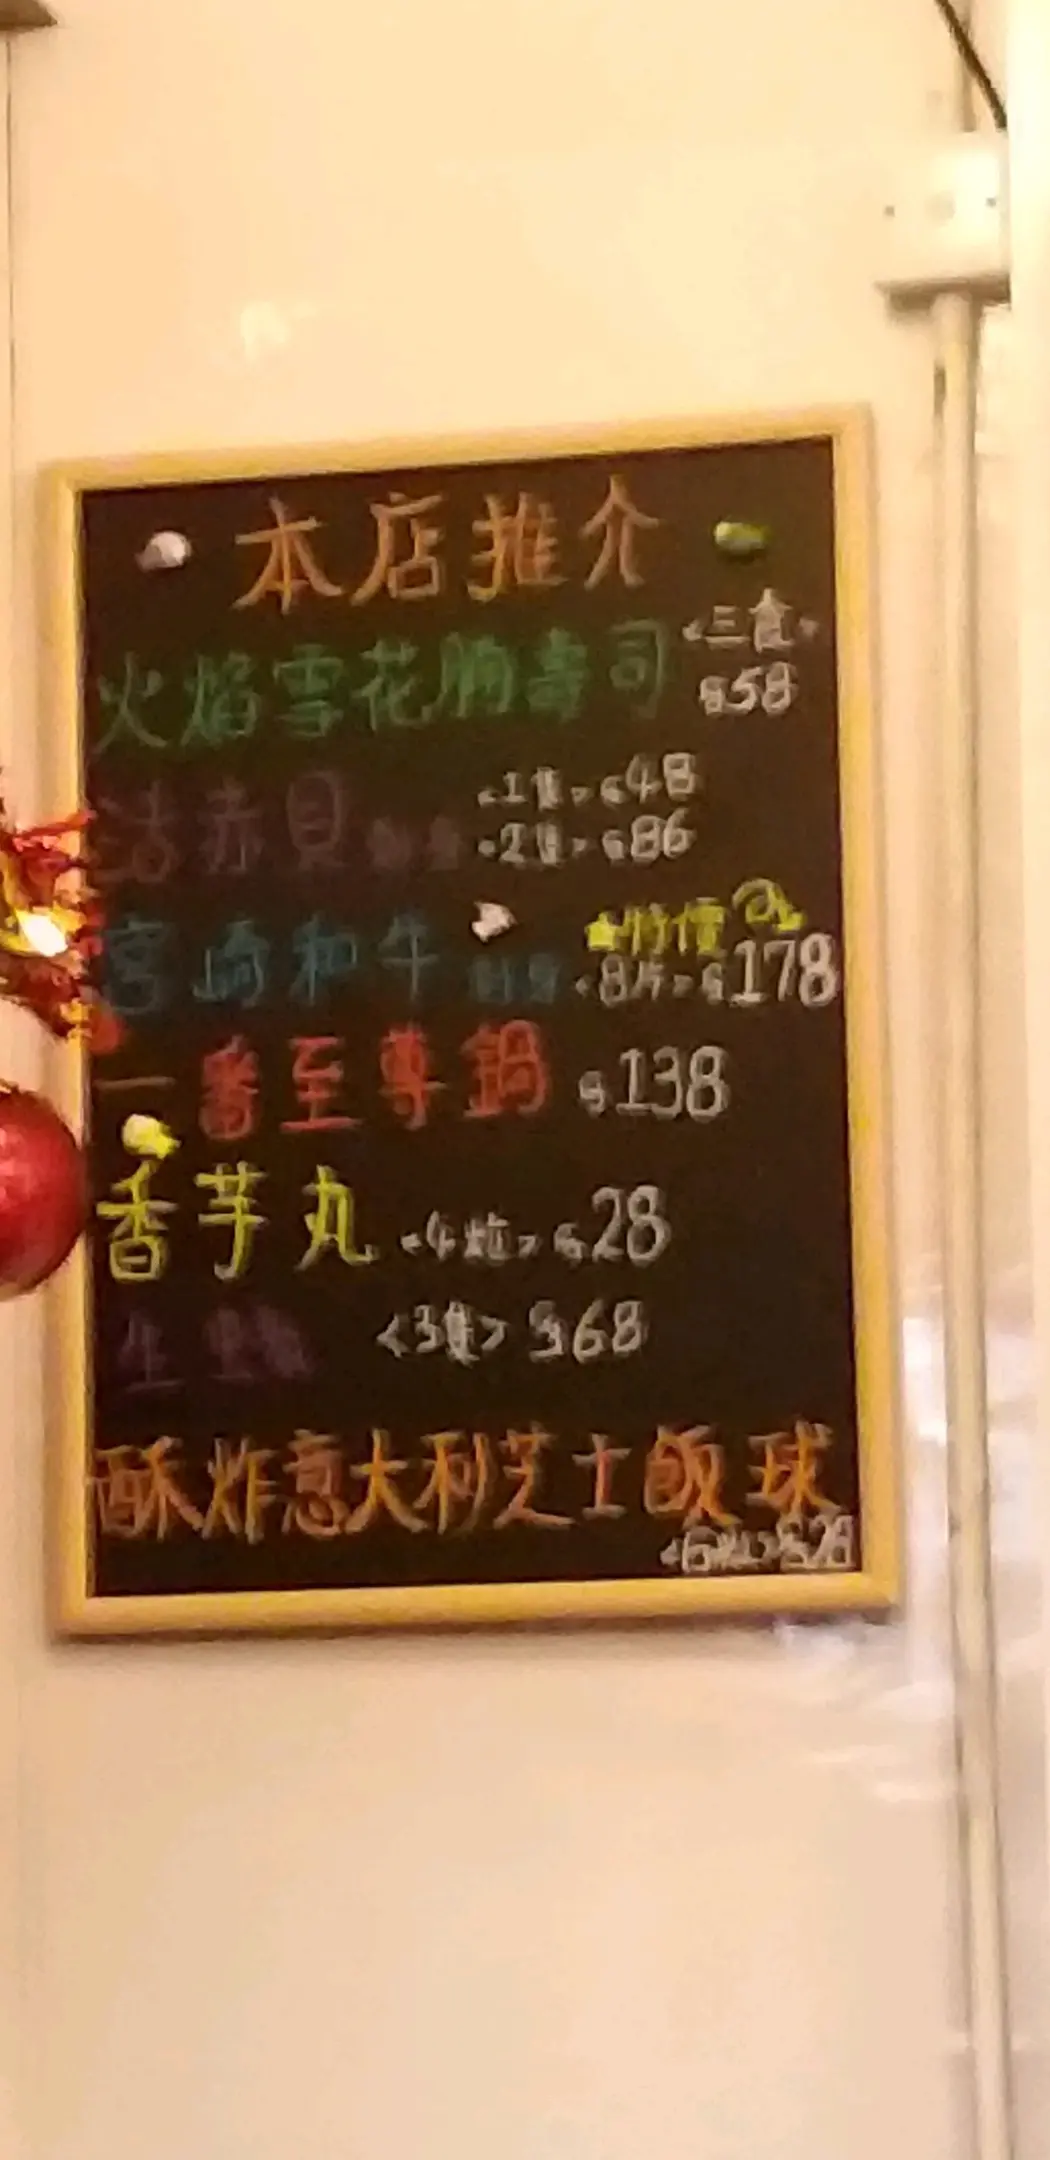 本店推介
火焰雪花腩壽司 <三貫>
$58
活赤貝 <1隻> $48
<2隻> $86
★特價
宮崎和牛 <8片> $178
一番至尊鍋 $138
香芋丸 <4粒> $28
生 <3隻> $68
酥炸意大利芝士飯球
$28